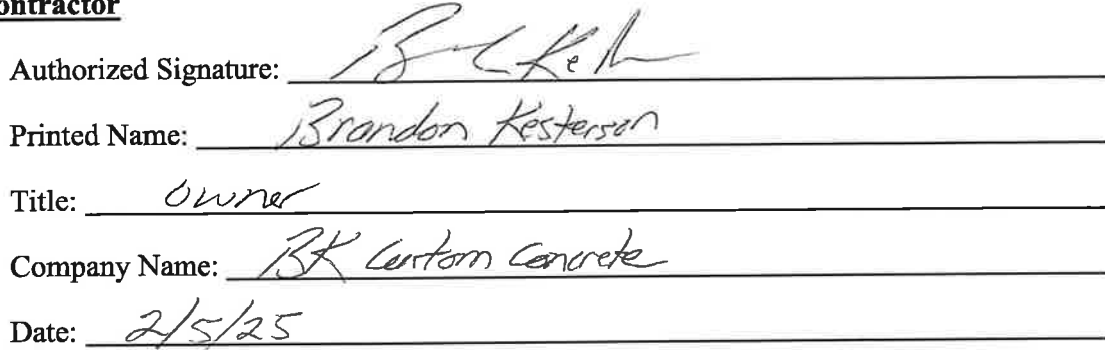 ontractor
Authorized Signature:
Printed Name: Brandon Kesterson
Title: Owner
Company Name: BK Custom Concrete
Date: 2/5/25